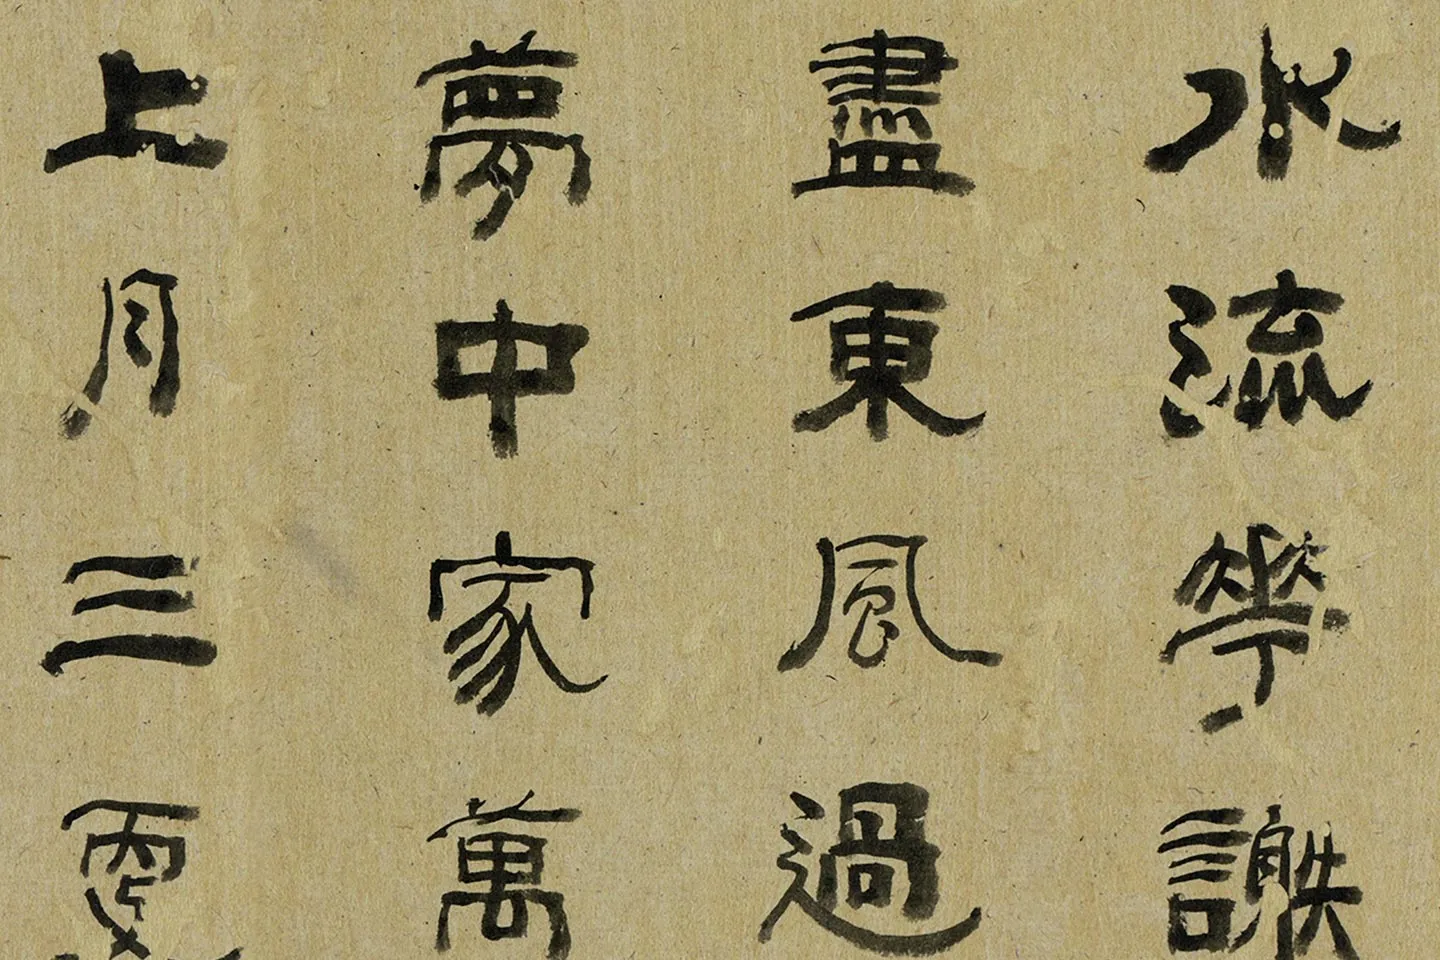 水流花謝
盡東風過
夢中家萬
上月三更